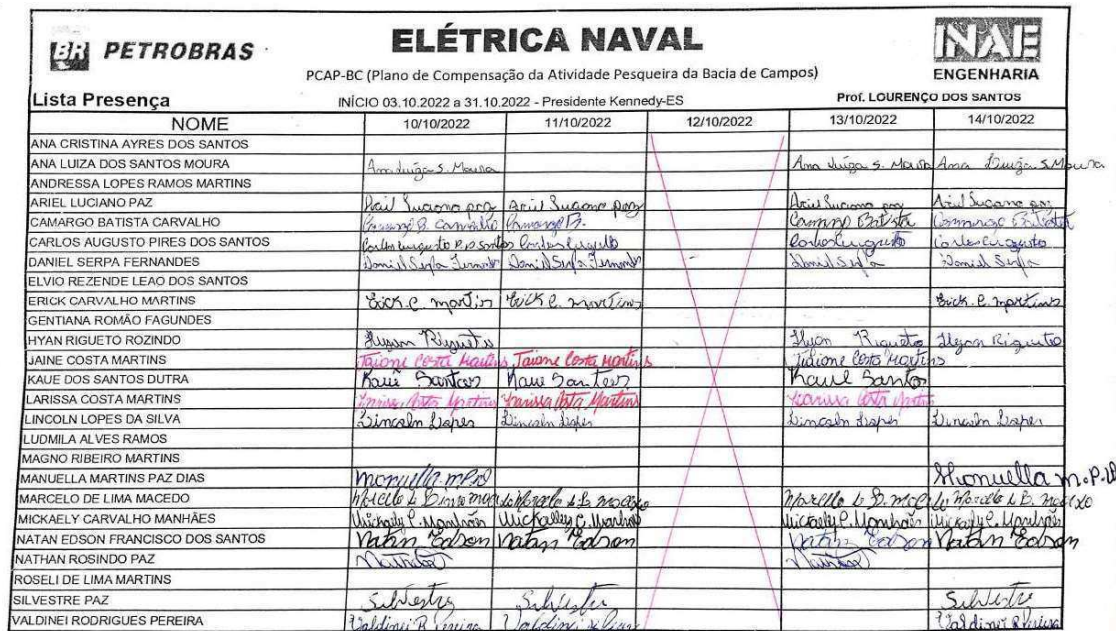 BR PETROBRAS
ELÉTRICA NAVAL
INAE ENGENHARIA
PCAP-BC (Plano de Compensação da Atividade Pesqueira da Bacia de Campos)
Lista Presença INÍCIO 03.10.2022 a 31.10.2022 - Presidente Kennedy-ES Prof. LOURENÇO DOS SANTOS
NOME 10/10/2022 11/10/2022 12/10/2022 13/10/2022 14/10/2022
ANA CRISTINA AYRES DOS SANTOS
ANA LUIZA DOS SANTOS MOURA Ana Luiza S. Moura Ana Luiza S. Moura Ana Luiza S. Moura
ANDRESSA LOPES RAMOS MARTINS
ARIEL LUCIANO PAZ Ariel Luciano paz Ariel Luciano paz Ariel Luciano paz Ariel Luciano paz
CAMARGO BATISTA CARVALHO Camargo B. Carvalho Camargo B. Camargo Batista Camargo Batista
CARLOS AUGUSTO PIRES DOS SANTOS Carlos augusto P. D Santos Carlos augusto Carlos augusto Carlos augusto
DANIEL SERPA FERNANDES Daniel Serpa Fernandes Daniel Serpa Fernandes Daniel Serpa Daniel Serpa
ELVIO REZENDE LEAO DOS SANTOS
ERICK CARVALHO MARTINS Erick C. martins Erick C. martins Erick C. martins
GENTIANA ROMÃO FAGUNDES
HYAN RIGUETO ROZINDO Hyan Rigueto Hyan Rigueto Hyan Rigueto
JAINE COSTA MARTINS Jaione Costa Martins Jaione Costa Martins Jaione Costa Martins
KAUE DOS SANTOS DUTRA Kaue Santos Kaue Santos Kaue Santos
LARISSA COSTA MARTINS Larissa Costa Martins Larissa Costa Martins Larissa Costa Martins
LINCOLN LOPES DA SILVA Lincoln Lopes Lincoln Lopes Lincoln Lopes Lincoln Lopes
LUDMILA ALVES RAMOS
MAGNO RIBEIRO MARTINS
MANUELLA MARTINS PAZ DIAS Manuella m.P.D Manuella m.P.D
MARCELO DE LIMA MACEDO Marcelo de L. macedo Marcelo de L. macedo Marcelo de L. macedo Marcelo de L. macedo
MICKAELY CARVALHO MANHÃES Mickaely C. Manhães Mickaelly C. Manhães Mickaely C. Manhães Mickaely C. Manhães
NATAN EDSON FRANCISCO DOS SANTOS Natan Edson Natan Edson Natan Edson Natan Edson
NATHAN ROSINDO PAZ Nathan Nathan
ROSELI DE LIMA MARTINS
SILVESTRE PAZ Silvestre Silvestre Silvestre
VALDINEI RODRIGUES PEREIRA Valdinei R Pereira Valdinei Valdinei R Pereira